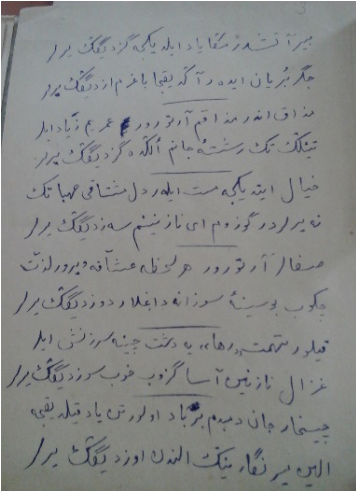 بیر آتشدر منگا یاد ایله یکجه گزدیگنگ یرلر
جگر بریان ایده ر باغرم ازدیگنگ یرلر
مذاق اندر مذاقم آرتورور عمریم زیاد ایلر
تک رشتهٔ جانم گزدیگنگ یرلر
خیال ایتدیکجه مست ایلر دل مشتاقی صهبا تک
نه یرلردر گوزوم ای نازنینم سه زدیگنگ یرلر
صفالر آرتورور هر لحظه عشاقه ویرور لذت
چکوب بو سینهٔ سوزانه داغلار دوزدیگنگ یرلر
قیلور تهمت «رها» یه دشت چینه سرزنش ایلر
غزال نازنین آسا گزوب خوب سوزدیگنگ یرلر
جان دمبدم برباد اولور تن یاد قیلدیقجه
الین بیر نگارینگ الندن اوزدیگنگ یرلر